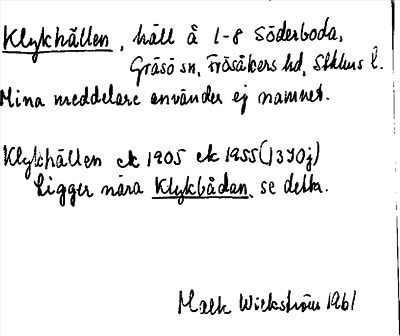 Klykhällen, häll å 1-8 Söderboda,
Gräsö sn, Frösåkers hd, Sthlms l.
Mina meddelare använder ej namnet.
Klykhällen ek 1905 ek 1955 (13 I 0j)
Ligger nära Klykbådan, se detta.
Maek Wickström 1961